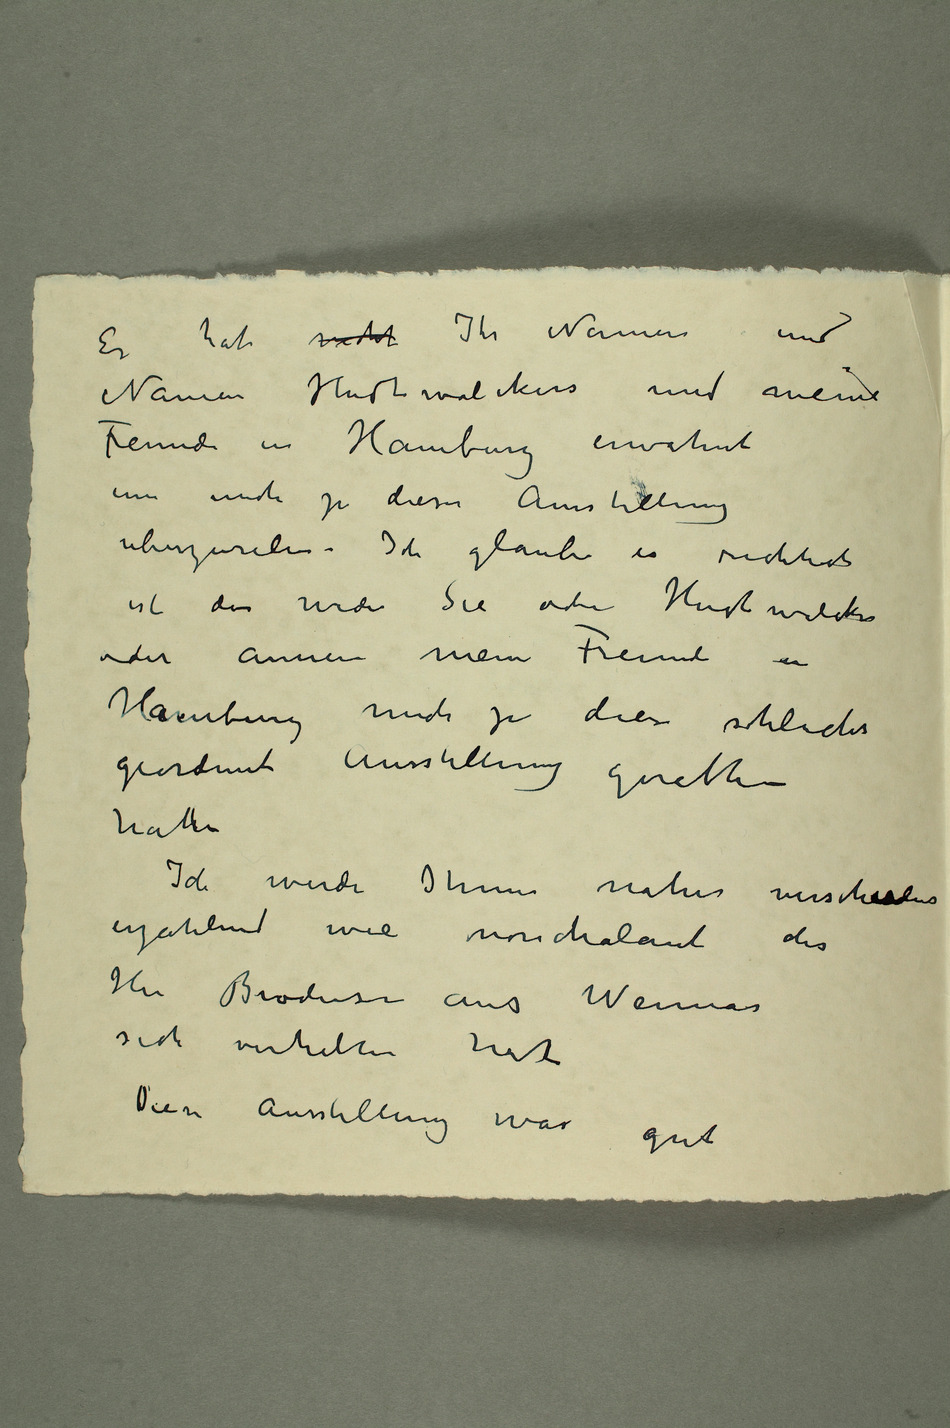 Er hat nicht Ihr Namen und
Namen Hudtwalckers und meine
Freunde in Hamburg erwähnt
um mich zu dieser Ausstellung
überzureden. Ich glaube es richtich
ist das weder Sie oder Hudtwalcker
oder annern mein Freunde in
Hamburg mich zu diese schlecht
geordnet Ausstellung gerathen
hatten
Ich werde Ihnen näher verschiedenes
erzählend wie nonchalant des
Herr Brodersen aus Weimar
sich verhelten hat
Diese Ausstellung war gut